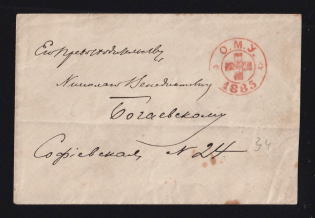 Его Превосходительству
О.М.У.
1885
Николаю Венедиктовичу
Богаевскому
Софiевская, № 24
34